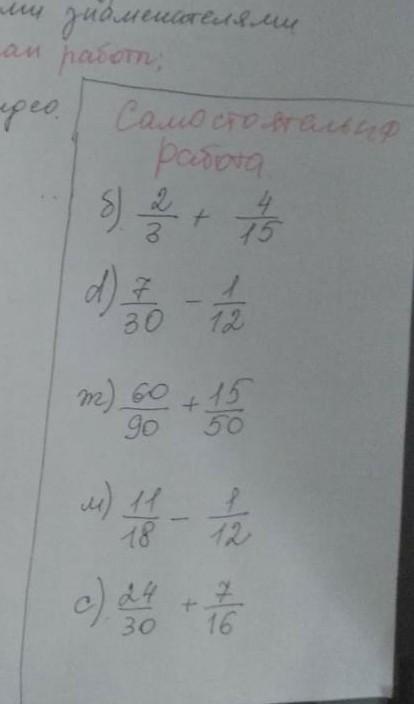 ми знаменателями
ан работы;
идео.
Самостоятельная
работа
б) 2/3 + 4/15
д) 7/30 - 1/12
т) 60/90 + 15/50
м) 11/18 - 1/12
с) 24/30 + 7/16